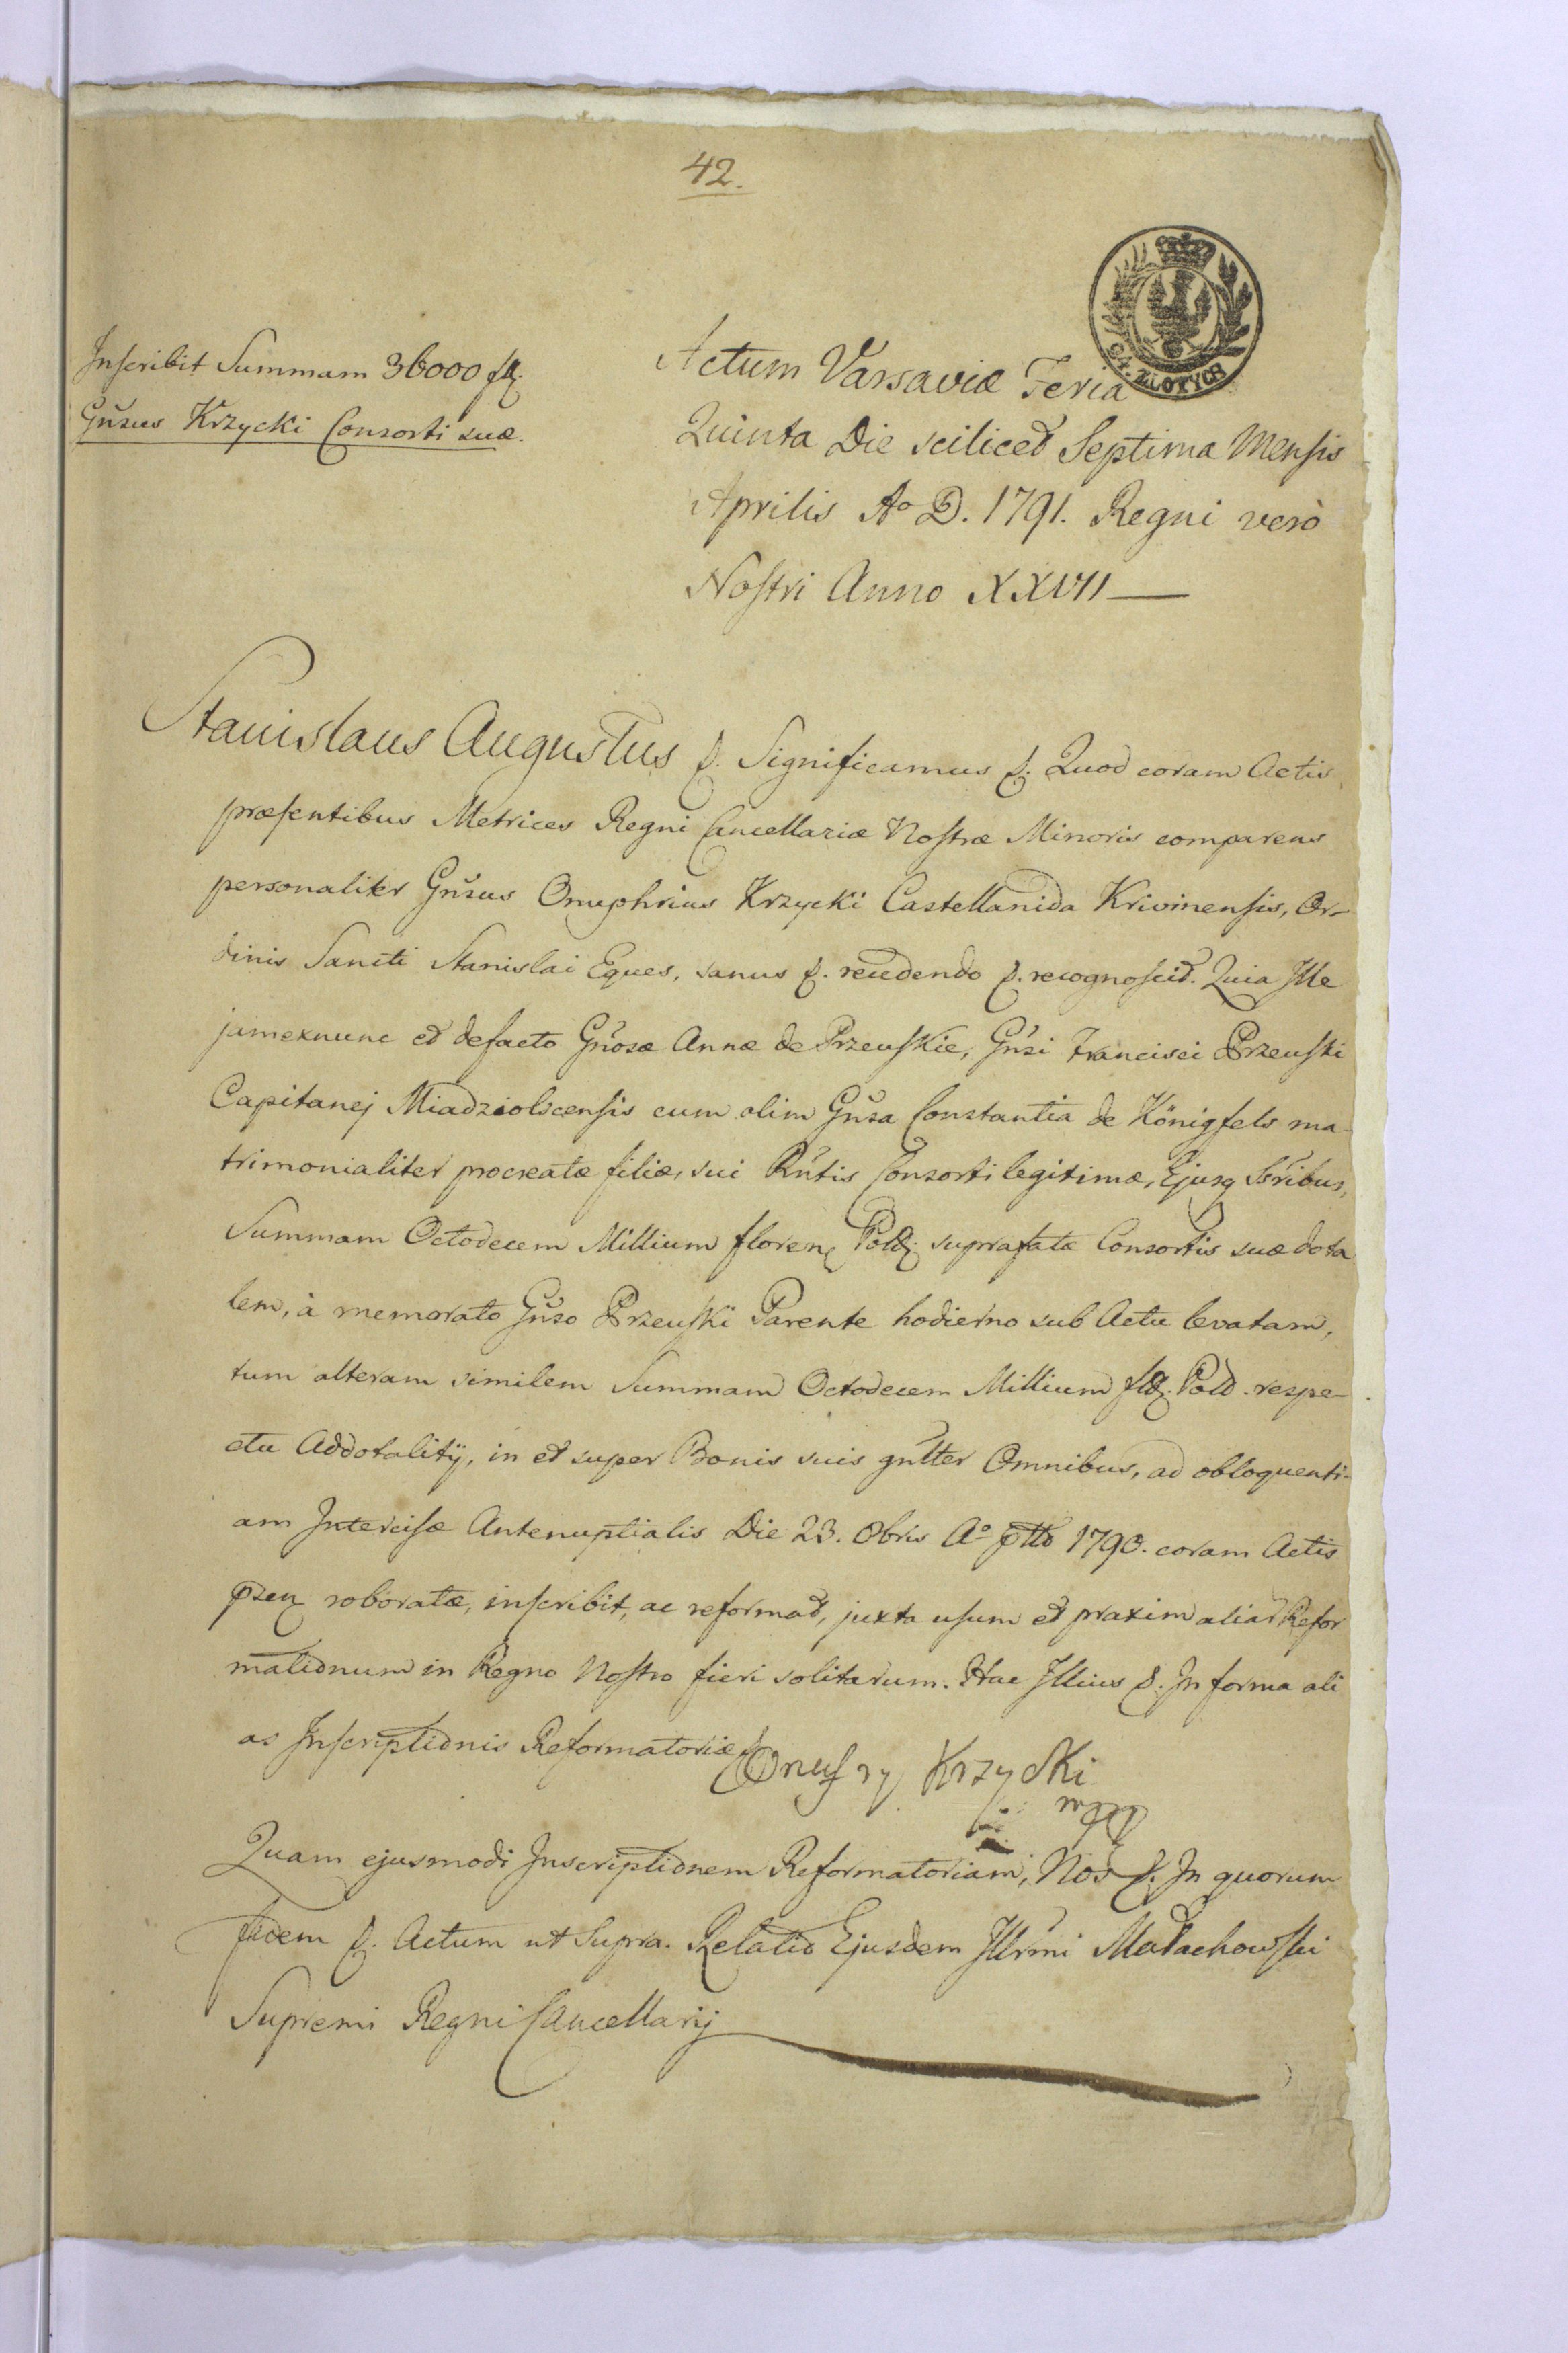 42.
Inscribit Summam 36000 fl.
Gnsus Krzycki Consorti suæ.
Actum Varsaviæ Feria
Quinta Die scilicet Septima Mensis
Aprilis Ao D. 1791. Regni verò
Nostri Anno XXVII
ZŁOTYCH
Stanislaus Augustus &. Significamus &. Quod coram Actis
præsentibus Metrices Regni Cancellariæ Nostræ Minoris comparens
personaliter Gnsus Onuphrius Krzycki Castellanida Krivinensis, Or-
dinis Sancti Stanislai Eques, sanus &. recedendo &. recognoscit. Quia Ille
jamexnunc et defacto Gnosæ Annæ de Przeuskie, Gnsi Francisci Przeuski
Capitanej Miadziolscensis cum olim Gnsa Constantia de Königfels ma-
trimonialiter procreatæ filiæ, sui Rntis Consorti legitimæ, Ejusq Sśribus,
Summam Octodecem Millium floren Pold suprafatæ Consortis suæ dota
lem, à memorato Gnso Przeuski Parente hodierno sub Actu levatam,
tum alteram similem Summam Octodecem Millium fld. Pold. respe-
ctu Addotalitÿ, in et super Bonis suis gnlter Omnibus, ad obloquenti-
am Intercisæ Antenuptialis Die 23. Obris Ao ptto 1790. coram Actis
pzen roboratæ, inscribit, ac reformat, juxta usum et praxim aliar Refor
mationum in Regno Nostro fieri solitarum. Hac Illius &. In forma ali
as Inscriptionis Reformatoriæ Onufry Krzycki
mpp
Quam ejusmodi Inscriptionem Reformatoriam, Nos &. In quorum
fidem &. Actum ut Supra. Relatio Ejusdem Illrmi Małachowski
Supremi Regni Cancellarij